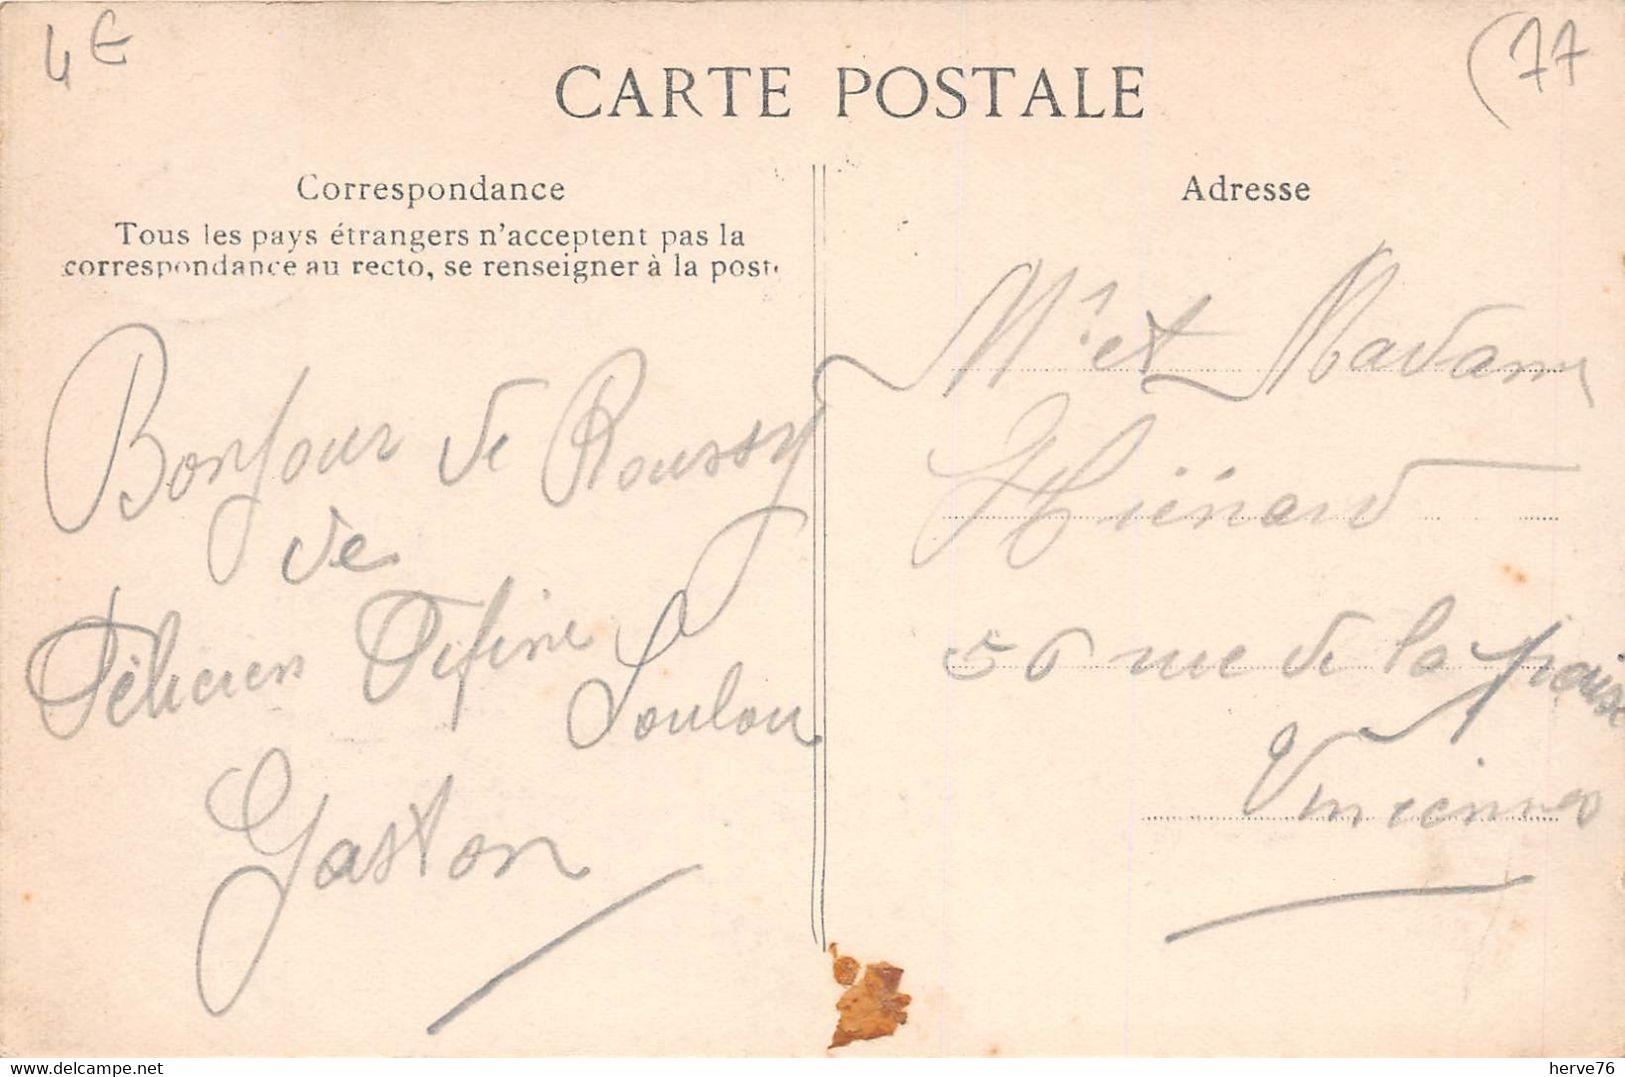 4€
(77
CARTE POSTALE
Correspondance
Tous les pays étrangers n'acceptent pas la
correspondance au recto, se renseigner à la poste
Bonjour de Roussy
de
Félicien Fifine Loulou
Gaston
Adresse
Mr et Madame
Thiénard
56 rue de la
Vincennes
herve76